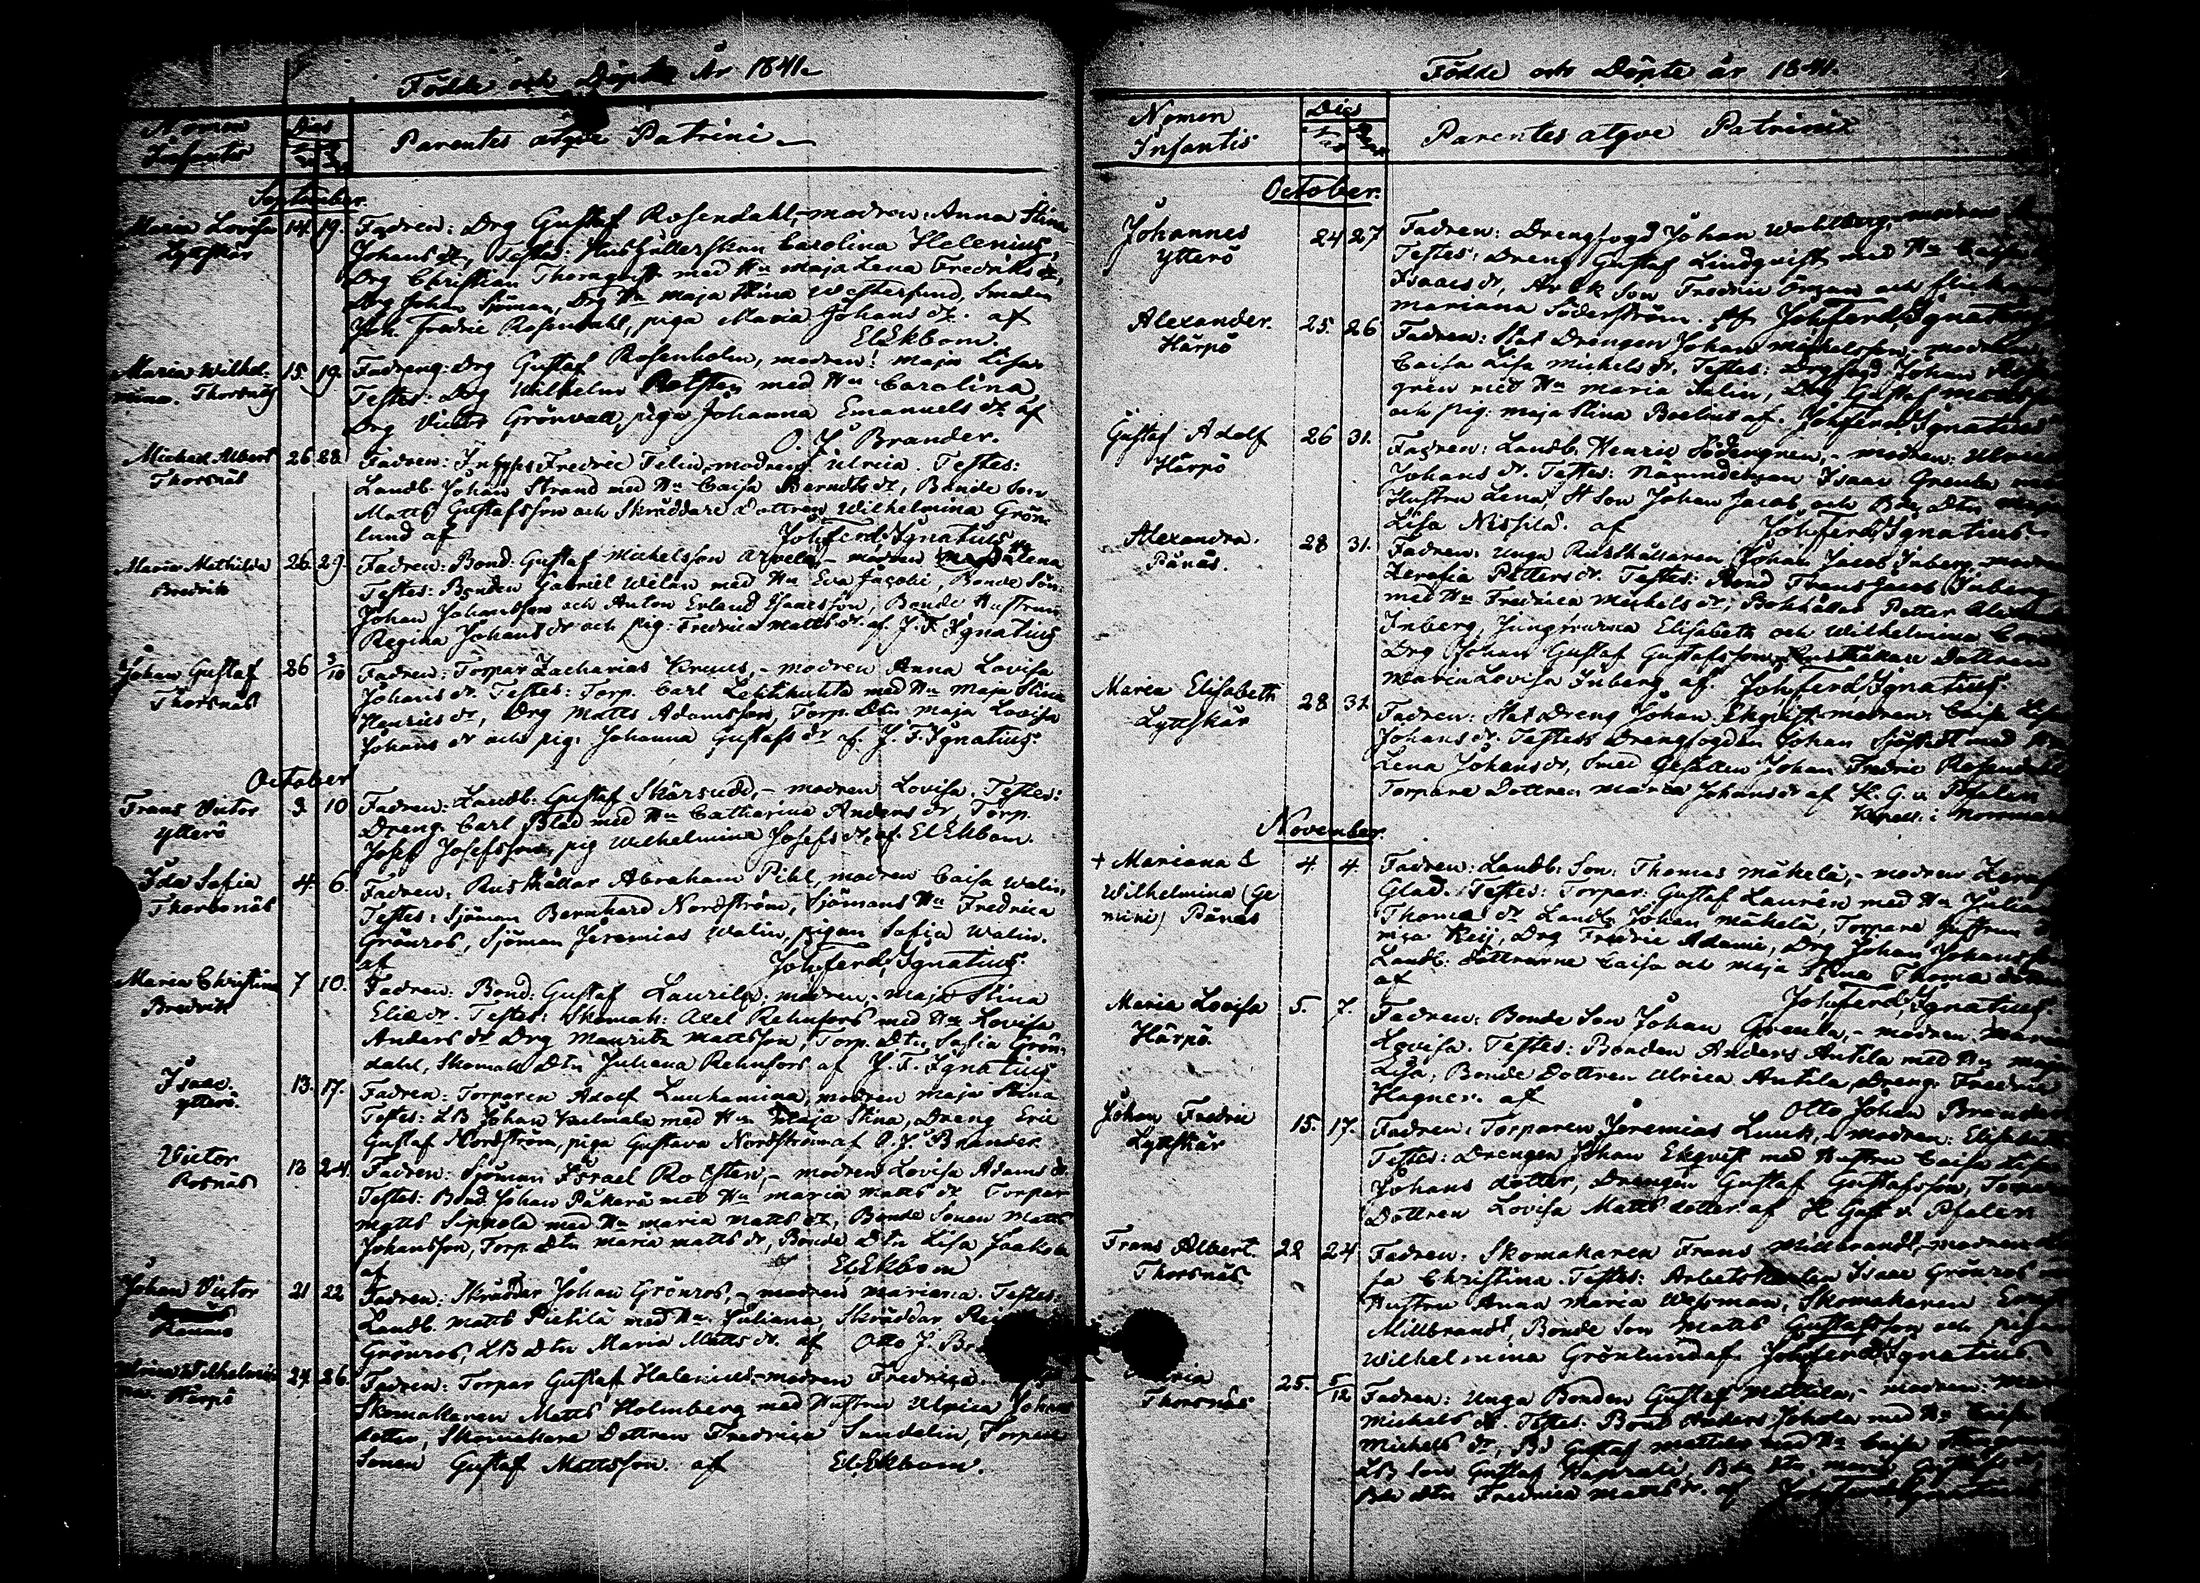 Födde och Döpte År 1841.
Nomen
Infantis
Dies
Parentes atque Patrini
September.
Maria Lovisa
Lyttskär
14. 19.
Fadren: Drg Gustaf Rosendahl, modren: Anna Stina
Johans dr, Testes: Hushållerskan Carolina Helenius,
Drg Christian Thornqvist med Hu Maja Lena Fredriks dr,
Drg Johan Sjöman, Drg Hu Maja Stina Westerlund, Smeden
Joh. Fredric Rosendahl, piga Maria Johans dr. af
El Ekbom.
Maria Wilhel-
mina. Thorsnäs
15. 19.
Fadren: Drg Gustaf Rosenholm, modren: Maja Lisa
Testes: Drg Wilhelm Rolsten med Hu Carolina
Drg Victor Grönvall, piga Johanna Emanuels dr af
O. J. Brander.
Michael Albert
Thorsnäs
26. 28.
Fadren: Fredric Felin, modren Ulrica. Testes:
Landb. Johan Strand med Hu Caisa Berndts dr, Bonde Son
Matts Gustafsson och Skräddare dottren Wilhelmina Grön-
lund af Joh ferd. Ignatius.
Maria Mathilda
Bredvik
26. 29.
Fadren: Bond: Gustaf Michelsson Arvela, modren Magdalena
Testes: Bonden Gabriel Welin med Hu Eva Jacobi, Bonde Son
Johan Johansson och Anton Erland Isacsson, Bonde Hustrun
Regina Johans dr och pig: Fredrica Matts dr. af J. F. Ignatius
Johan Gustaf
Thorsnäs
26 3/10
Fadren: Torpar Zacharias Cruus, modren Anna Lovisa
Johans dr. Testes: Torp. Carl Lehtihuhta med Hu Maja Stina
Henrics dr, Drg Matts Adamsson, Torp. Dtr Maja Lovisa
Johans dr och pig: Johanna Gustafs dr af J. F. Ignatius.
October
Frans Victor
Ytterö
3 10
Fadren: Landb: Gustaf Skärsudd, modren Lovisa. Testes:
Dreng Carl Blad med Hu Catharina Anders dr, Torp.
Josef Josefsson, pig Wilhelmina Josefs dr. af El Ekbom.
Ida Sofia
Thorsnäs
4. 6.
Fadren: Rusthållar Abraham Pihl, modren Caisa Walin,
Testes: Sjöman Bernhard Nordström, Sjömans Hu Fredrica
Grönros, Sjöman Jeremias Walin, pigan Sofia Walin.
af Joh ferd. Ignatius.
Maria Christina
Bredvik
7 10.
Fadren: Bond: Gustaf Laurila, modren, Maja Stina
Elie dr. Testes: Skomak: Axel Rehnfors med Hu Lovisa
Anders dr Drg Mauritz Mattsson, Torp. Dtr. Sofia Grön-
dahl, Skomak Dtr Juliana Rehnfors af J. F. Ignatius.
Isaac.
Ytterö.
13. 17.
Fadren: Torparen Adolf Luukamina, modren Maja Stina
Testes: LB Johan med Hu Maja Stina, Dreng Eric
Gustaf Nordström, piga Gustava Nordström af O. J. Brander.
Victor
Rosnäs
13 24.
Fadren: Sjöman Israel Rolsten, modren Lovisa Adams dr
Testes: Bond Johan Päkerä med Hu Maria Matts dr Torpar
Matts Sippola med Hu Maria Matts dr, Bonde Sonen Matts
Johansson, Torp. Dtr Maria Matts dr, Bonde Dtr Lisa Jaakola
af El Ekbom
Johan Victor
Raumo
21 22
Fadren: Skräddar Johan Grönros, modren Mariana. Testes:
Landb. Matts Pietilä med Hu Juliana, Skräddar
Grönros, LB Dtr Maria Matts dr. af Otto J.
Wilhelmi-
na. Härpö
24. 26.
Fadren: Torpar Gustaf Halenius, modren Fredrica.
Skomakaren Matts Holmberg med Hustru Ulrica Johans
dotter, Skomakare Dottren Fredrica Sundelin, Torpare
Sonen Gustaf Mattsson. af El Ekbom.
Födde och Döpte år 1841.
Nomen
Infantis
Dies
Parentes atqve Patrini
October.
Johannes
Ytterö
24 27
Fadren: Drengfogd Johan Wahlberg, modren
Testes: Dreng Gustaf Lindqvist med Hu Caisa
Isaacs dr, Arb.k Son Fredric Öman och flickan
Mariana Söderström. af Joh ferd. Ignatius
Alexander.
Härpö
25. 26
Fadren: Stat Drengen Johan Michelsson, modren
Caisa Lisa Michels dr. Testes: Drgfogd Johan
gren med Hu Maria Salin, Drg Gustaf
och pig: Maja Stina Boelius af. Joh ferd. Ignatius
Gustaf Adolf
Härpö
26 31.
Fadren: Landb. Henric Södergren, modren: Ulrica
Johans dr. Testes: Nämndeman Isaac Greula med
Hustru Lena, St Son Johan Jacob och Bde Dtr Maja
Lisa Nissilä. af Joh ferd. Ignatius.
Alexandra.
Pänäs.
28 31.
Fadren: unga Rusthållaren Johan Jacob Inberg, modren
Serafia Petters dr. Testes: Bond Frans Jacob Inberg
med Hu Fredrica Michels dr, Bokhållar Petter
Inberg, Jungfrurna Elisabeth och Wilhelmina
Drg Johan Gustaf Gustafsson, Rusthållare Dottren
Maria Lovisa Inberg af. Joh ferd. Ignatius.
Maria Elisabeth
Lyttskär
28 31.
Fadren: Stat Dreng Johan Ekqvist, modren: Caisa Lisa
Johans dr. Testes: Drengfogden Johan Sjöstedt med Hu
Lena Johans dr, Smed Gesällen Johan Fredric Rosendahl
Torpare Dottren Maria Johans dr af H. G. v Pfaler
Capell. i Norrmark
November.
+ Mariana &
Wilhelmina (Ge-
mini) Pänäs
4. 4.
Fadren: Landb: Son: Thomas Mäkelä, modren
Glad. Testes: Torpar: Gustaf Laurén med Hu Juliana
Thomas dr Landb Johan Mäkelä, Torpare hustrun
Keij, Drg Fredric Adamie, Drg Johan Johansson
Landb: döttrarne Caisa och Maja Stina Thoma döttrar
af Joh ferd. Ignatius.
Maria Lovisa
Härpö.
5. 7.
Fadren: Bonde Son Johan Greula, modren: Maria
Lovisa. Testes: Bonden Anders Antila med Hu Maja
Lisa, Bonde Dottren Ulrica Antila, Dreng: Fredric
Hagner. af Otto Johan Brander
Johan Fredric
Lyttskär
15. 17.
Fadren: Torparen Jeremias Luuk, modren: Elisabeth
Testes: Drengen Johan Ekqvist med Hustru Caisa Lisa
Johans dotter, Drengen Gustaf Gustafsson, Torpare
Dottren Lovisa Matts dotter af H Gust v. Pfaler
Frans Albert.
Thorsnäs.
22 24.
Fadren: Skomakaren Frans Millbrandt, modren
sa Christina. Testes: Arbetskarlen Isaac Grönros
Hustru Anna Maria Wessman, Skomakaren
Millbrandt, Bonde Son Matts Gustafsson och pigan
Wilhelmina Grönlund af Joh ferd. Ignatius.
Thorsnäs
25. 5/12
Fadren: Unga Bonden Gustaf Mattila, modren: Maria
Michels dr. Testes: Bond Anders Johola med Hu Caisa
Michels dr, Bd Gustaf Mattila med Hu Caisa
LB Son Gustaf Haparati, Bde Dtr. Maria Gustafs dr,
Bde Dtr Fredrica Matts dr. af Joh ferd. Ignatius